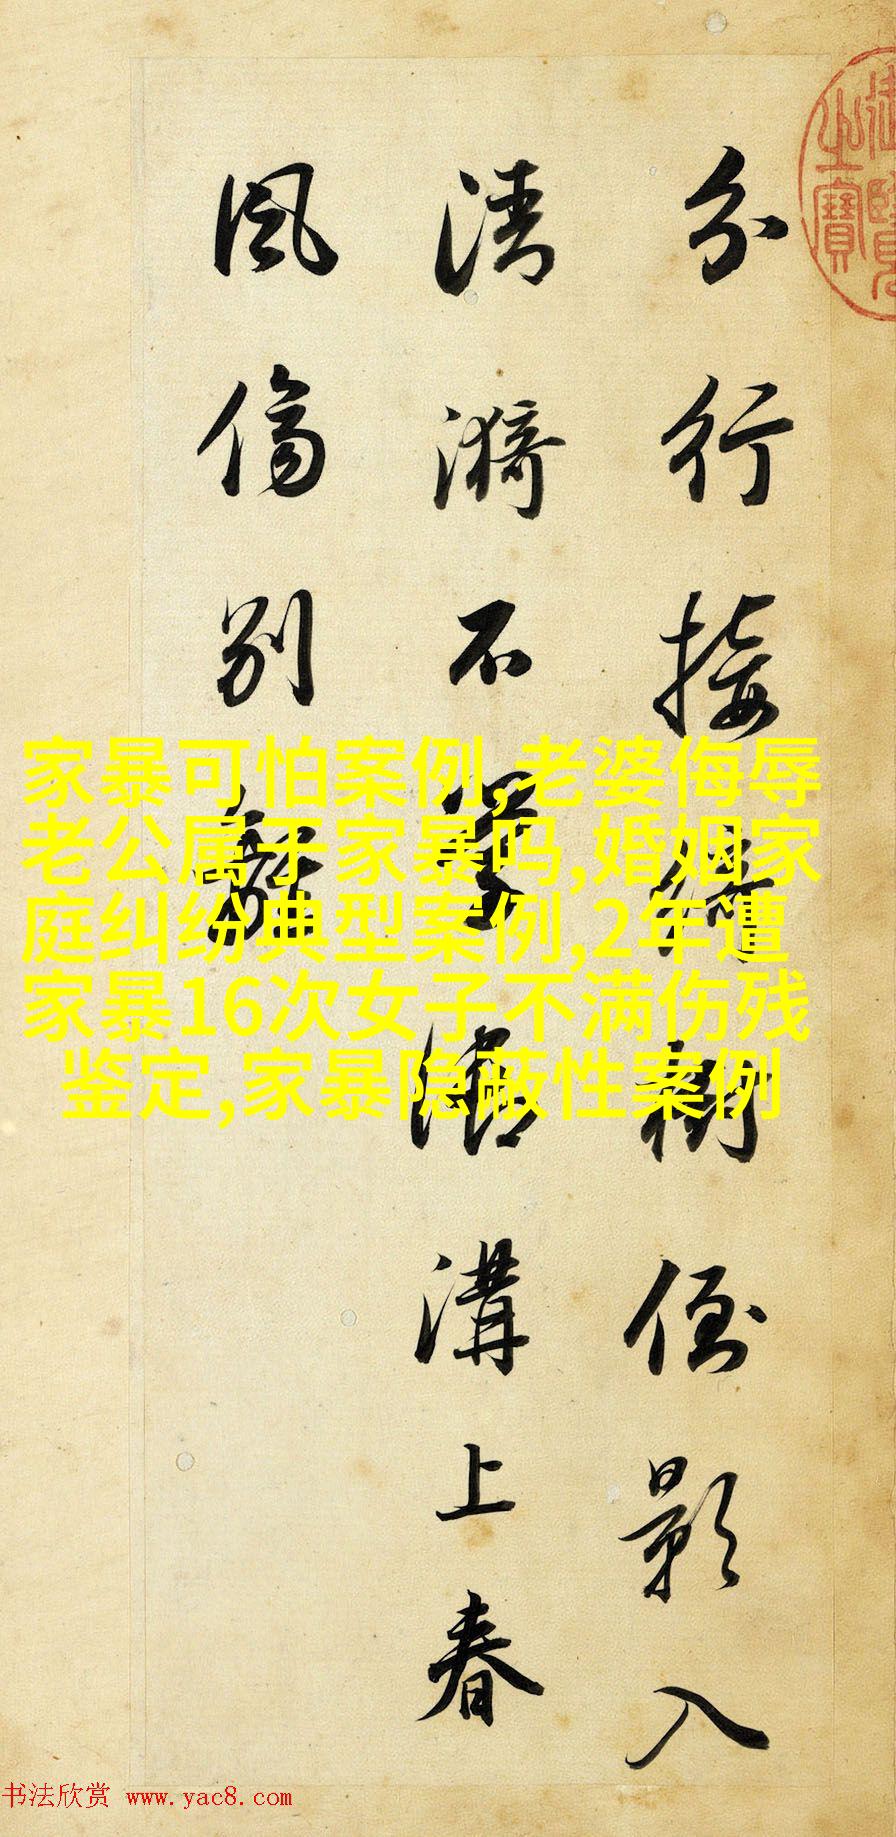 分行接綺樹倒影入
清漪不學御溝上春
風傷別離
之寶
家暴可怕案例,老婆侮辱
老公属于家暴吗,婚姻家
庭纠纷典型案例,2年遭
家暴16次女子不满伤残
鉴定,家暴隐蔽性案例
书法欣赏 www.yac8.com